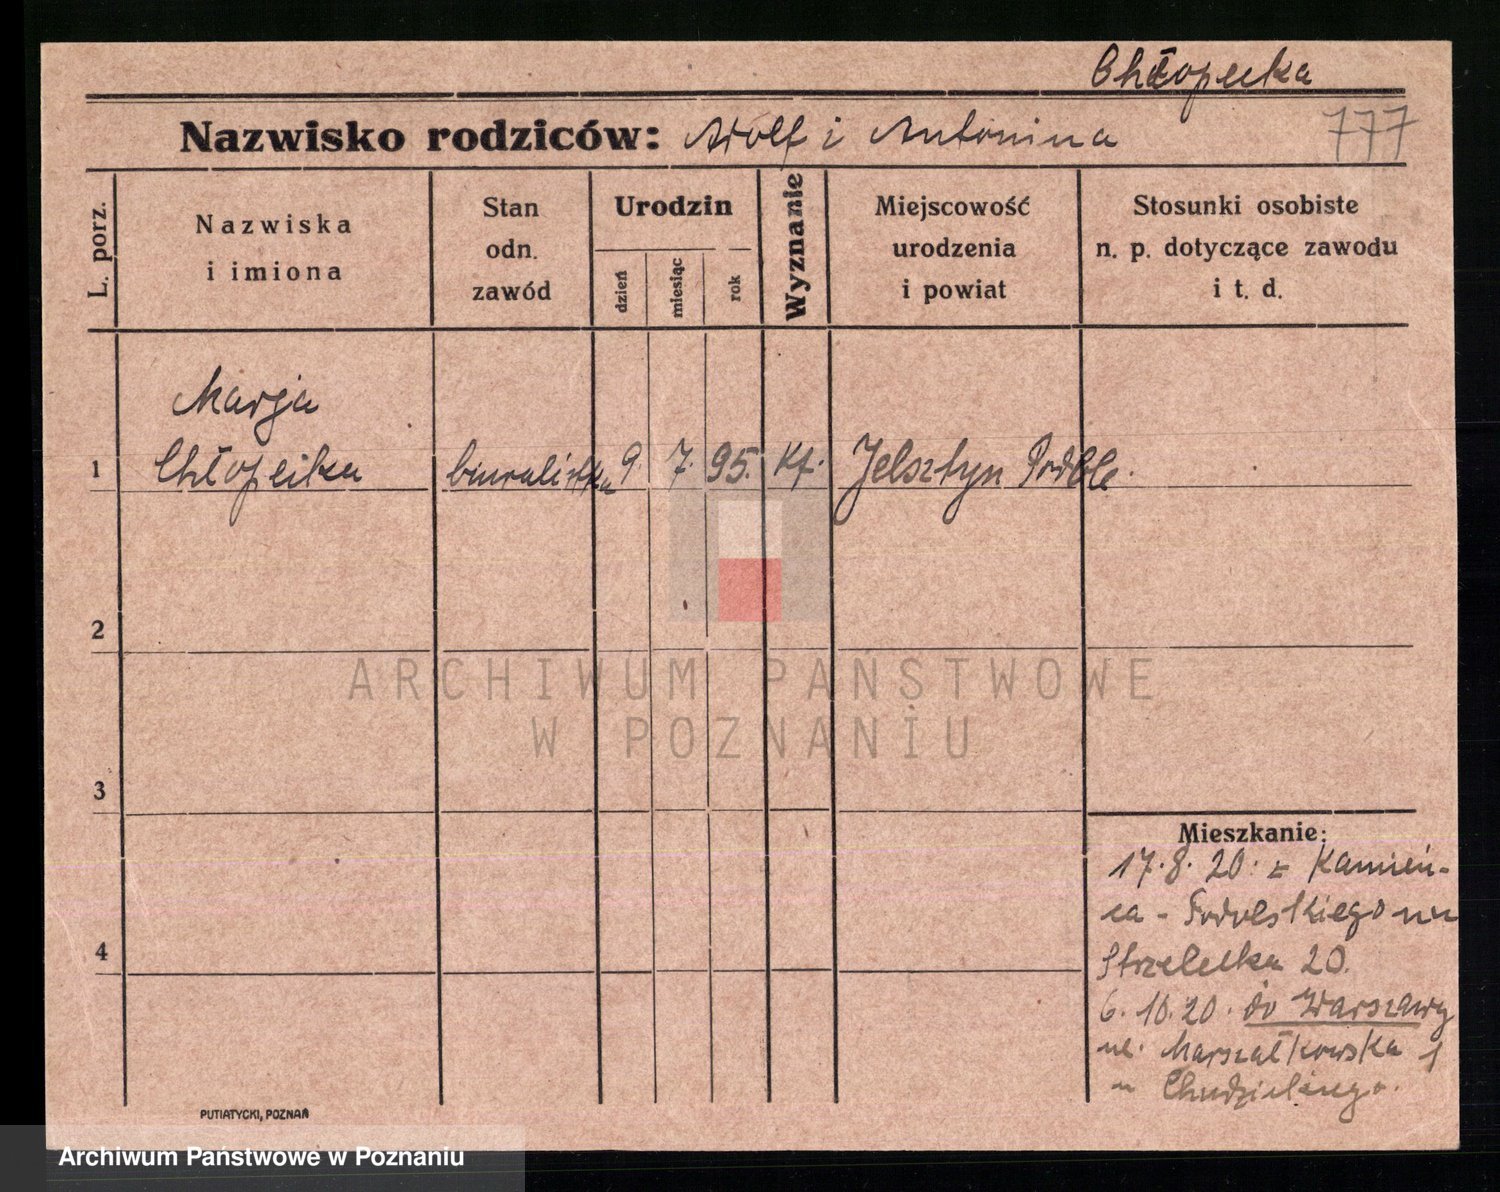 Chłopecka
Nazwisko rodziców: Adolf i Antonina
777
L. porz.
Nazwiska
i imiona
Stan
odn.
zawód
Urodzin
dzień
miesiąc
rok
Wyznanie
Miejscowość
urodzenia
i powiat
Stosunki osobiste
n. p. dotyczące zawodu
i t. d.
Marja
1 Chłopecka biuralistka 9. 7. 95. Kf. Jelsztyn
2
ARCHIWUM PAŃSTWOWE
W POZNANIU
3
Mieszkanie:
17.8.20. z Kamień-
ca - Podolskiego
4
Strzelecka 20.
6.10.20. do Warszawy
ul. Marszałkowska 1
u
PUTIATYCKI, POZNAŃ
Archiwum Państwowe w Poznaniu